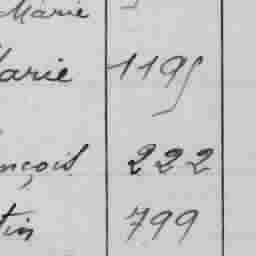 Marie
Marie 1195
nçois 222
tin 799